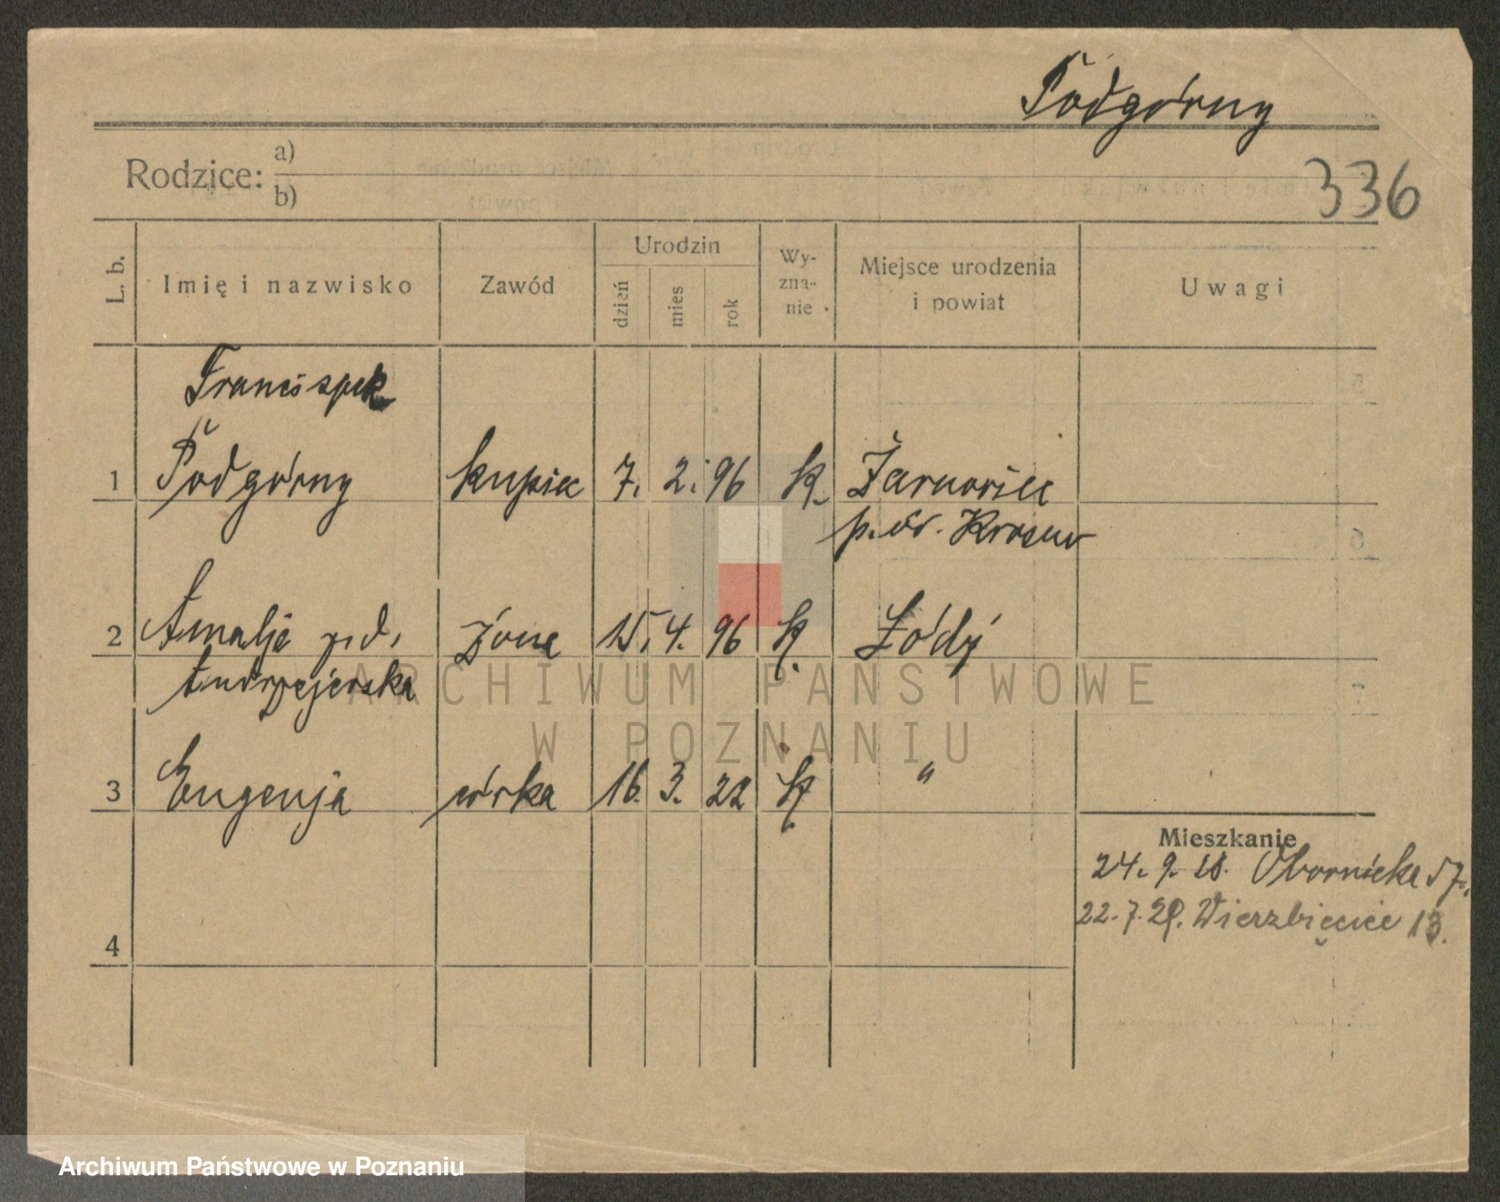 Podgórny
Rodzice: a)
b)
336
L. b.
Imię i nazwisko
Zawód
Urodzin
dzień
mies
rok
Wy-
zna-
nie
Miejsce urodzenia
i powiat
Uwagi
Franciszek
1 Podgórny kupiec 7. 2. 96 k. Żarnowiec
Krosno
2 Amalja żona 15. 4. 96 k. Łódź
Andrzejewska
3 Eugenja córka 16. 3. 22 k. "
4
Mieszkanie
24. 9. Obornicka 57.
22. 7. 29. Wierzbięcice 13.
ARCHIWUM PAŃSTWOWE
W POZNANIU
Archiwum Państwowe w Poznaniu